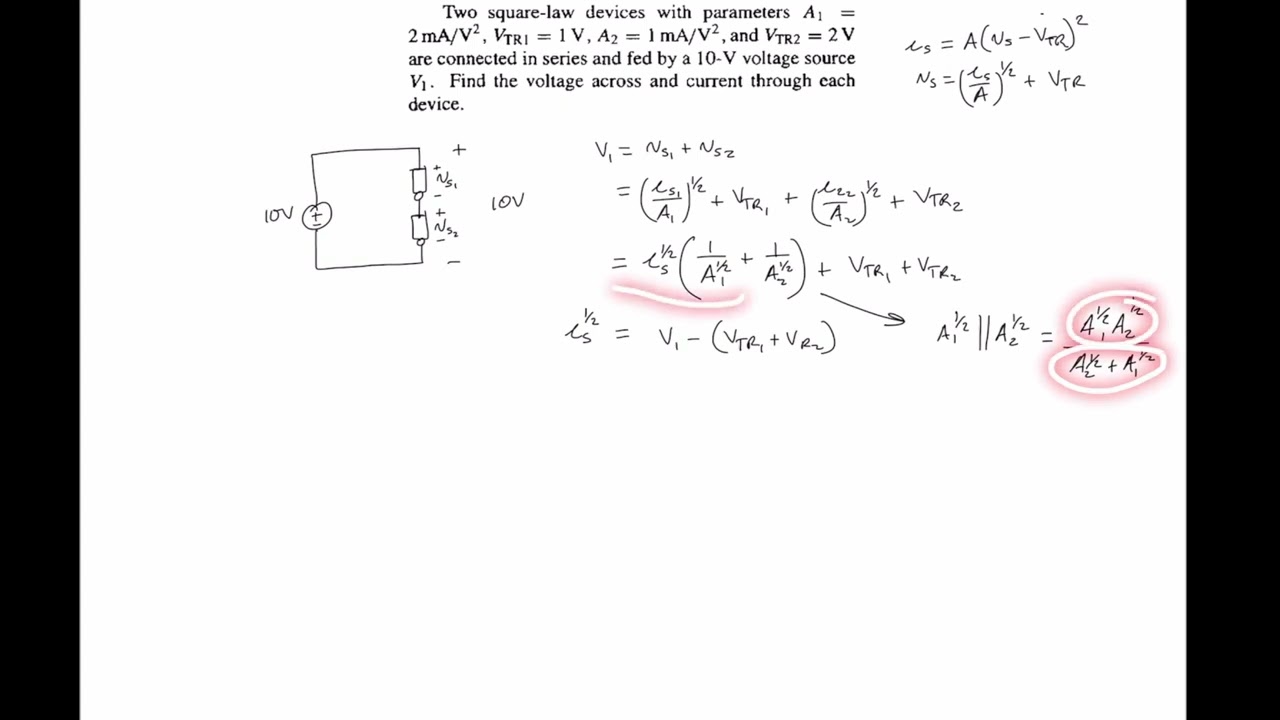 Two square-law devices with parameters A₁ =
2 mA/V², V_TR1 = 1 V, A₂ = 1 mA/V², and V_TR2 = 2 V
are connected in series and fed by a 10-V voltage source
V₁. Find the voltage across and current through each
device.
i_s = A(v_s - V_TR)²
v_s = (i_s/A)^1/2 + V_TR
10V
+
+ v_s1 -
+ v_s2 -
-
10V
V₁ = v_s1 + v_s2
= (i_s1/A₁)^1/2 + V_TR1 + (i_22/A₂)^1/2 + V_TR2
= i_s^1/2 (1/A₁^1/2 + 1/A₂^1/2) + V_TR1 + V_TR2
i_s^1/2 = V₁ - (V_TR1 + V_R2)
A₁^1/2 || A₂^1/2 = A₁^1/2 A₂^1/2 / A₂^1/2 + A₁^1/2